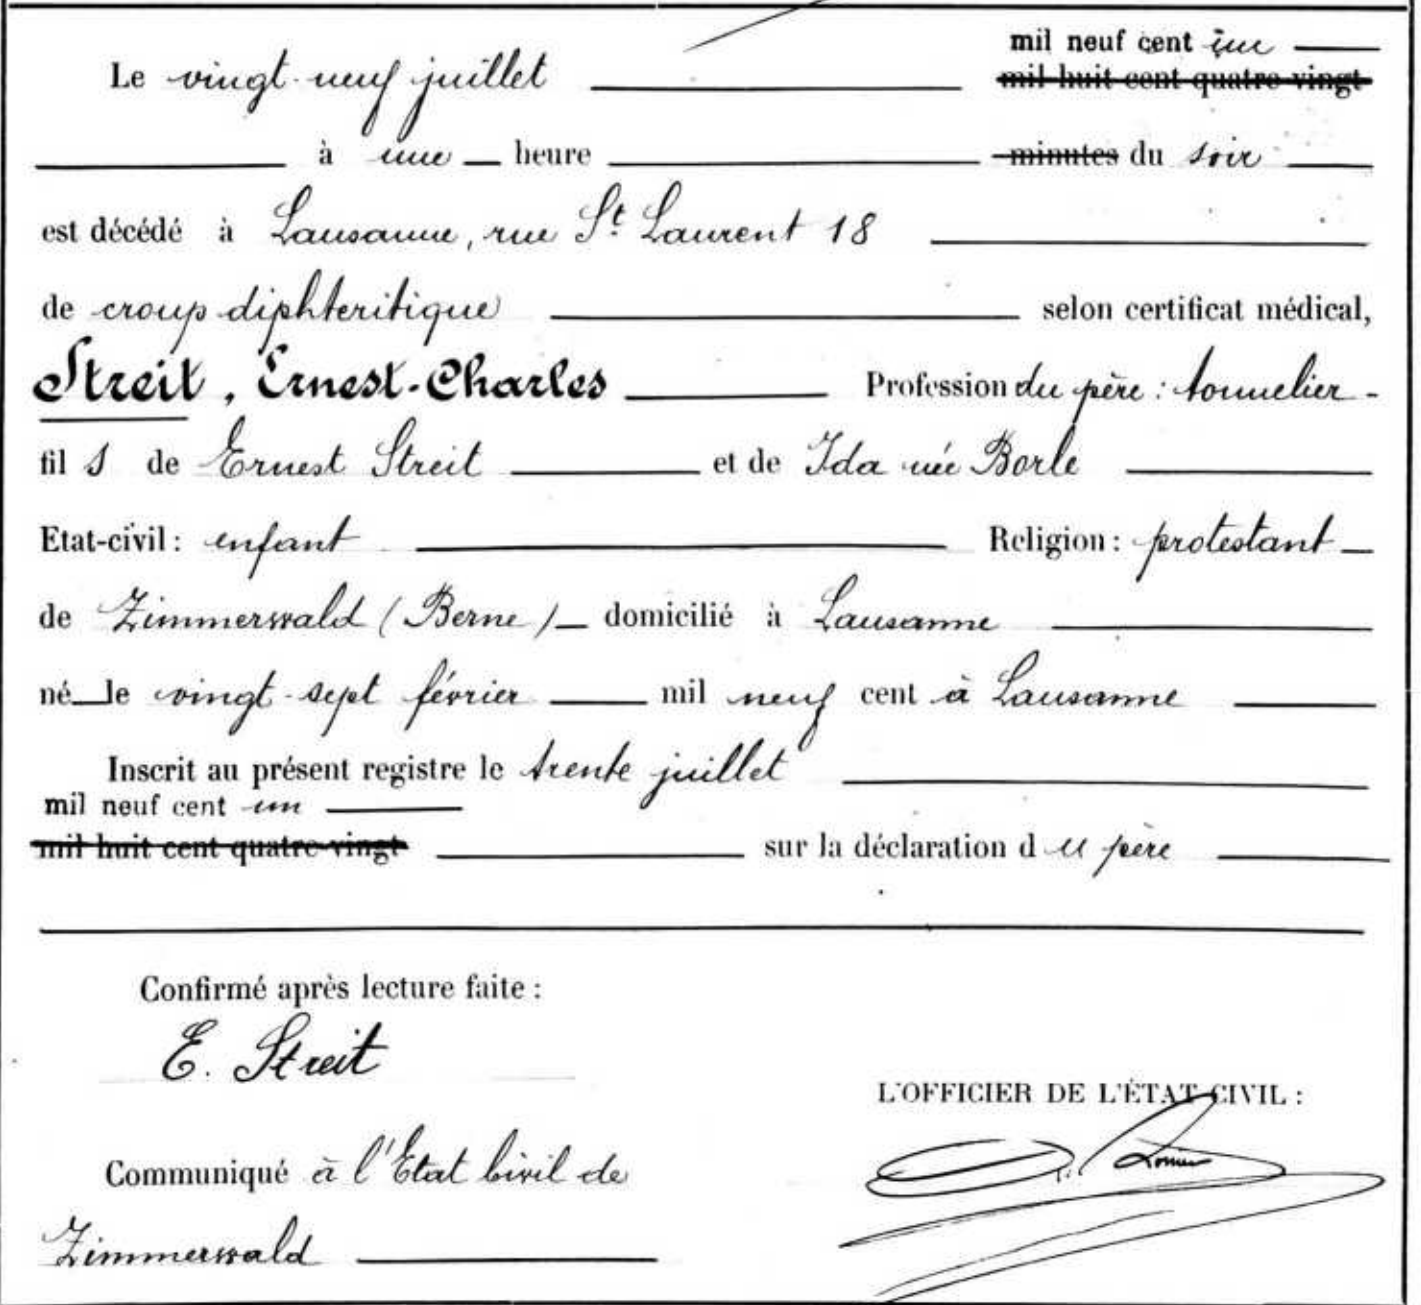 mil neuf cent un
Le vingt-neuf juillet mil huit cent quatre-vingt
à une heure minutes du soir
est décédé à Lausanne, rue St. Laurent 18
de croup diphteritique selon certificat médical,
Streit, Ernest-Charles Profession du père : tonnelier -
fils de Ernest Streit et de Ida née Borle
Etat-civil : enfant Religion : protestant
de Zimmerwald (Berne) domicilié à Lausanne
né le vingt-sept février mil neuf cent à Lausanne
Inscrit au présent registre le trente juillet
mil neuf cent un
mil huit cent quatre-vingt sur la déclaration du père
Confirmé après lecture faite :
E. Streit
L'OFFICIER DE L'ÉTAT-CIVIL :
Communiqué à l'Etat Civil de
Zimmerwald